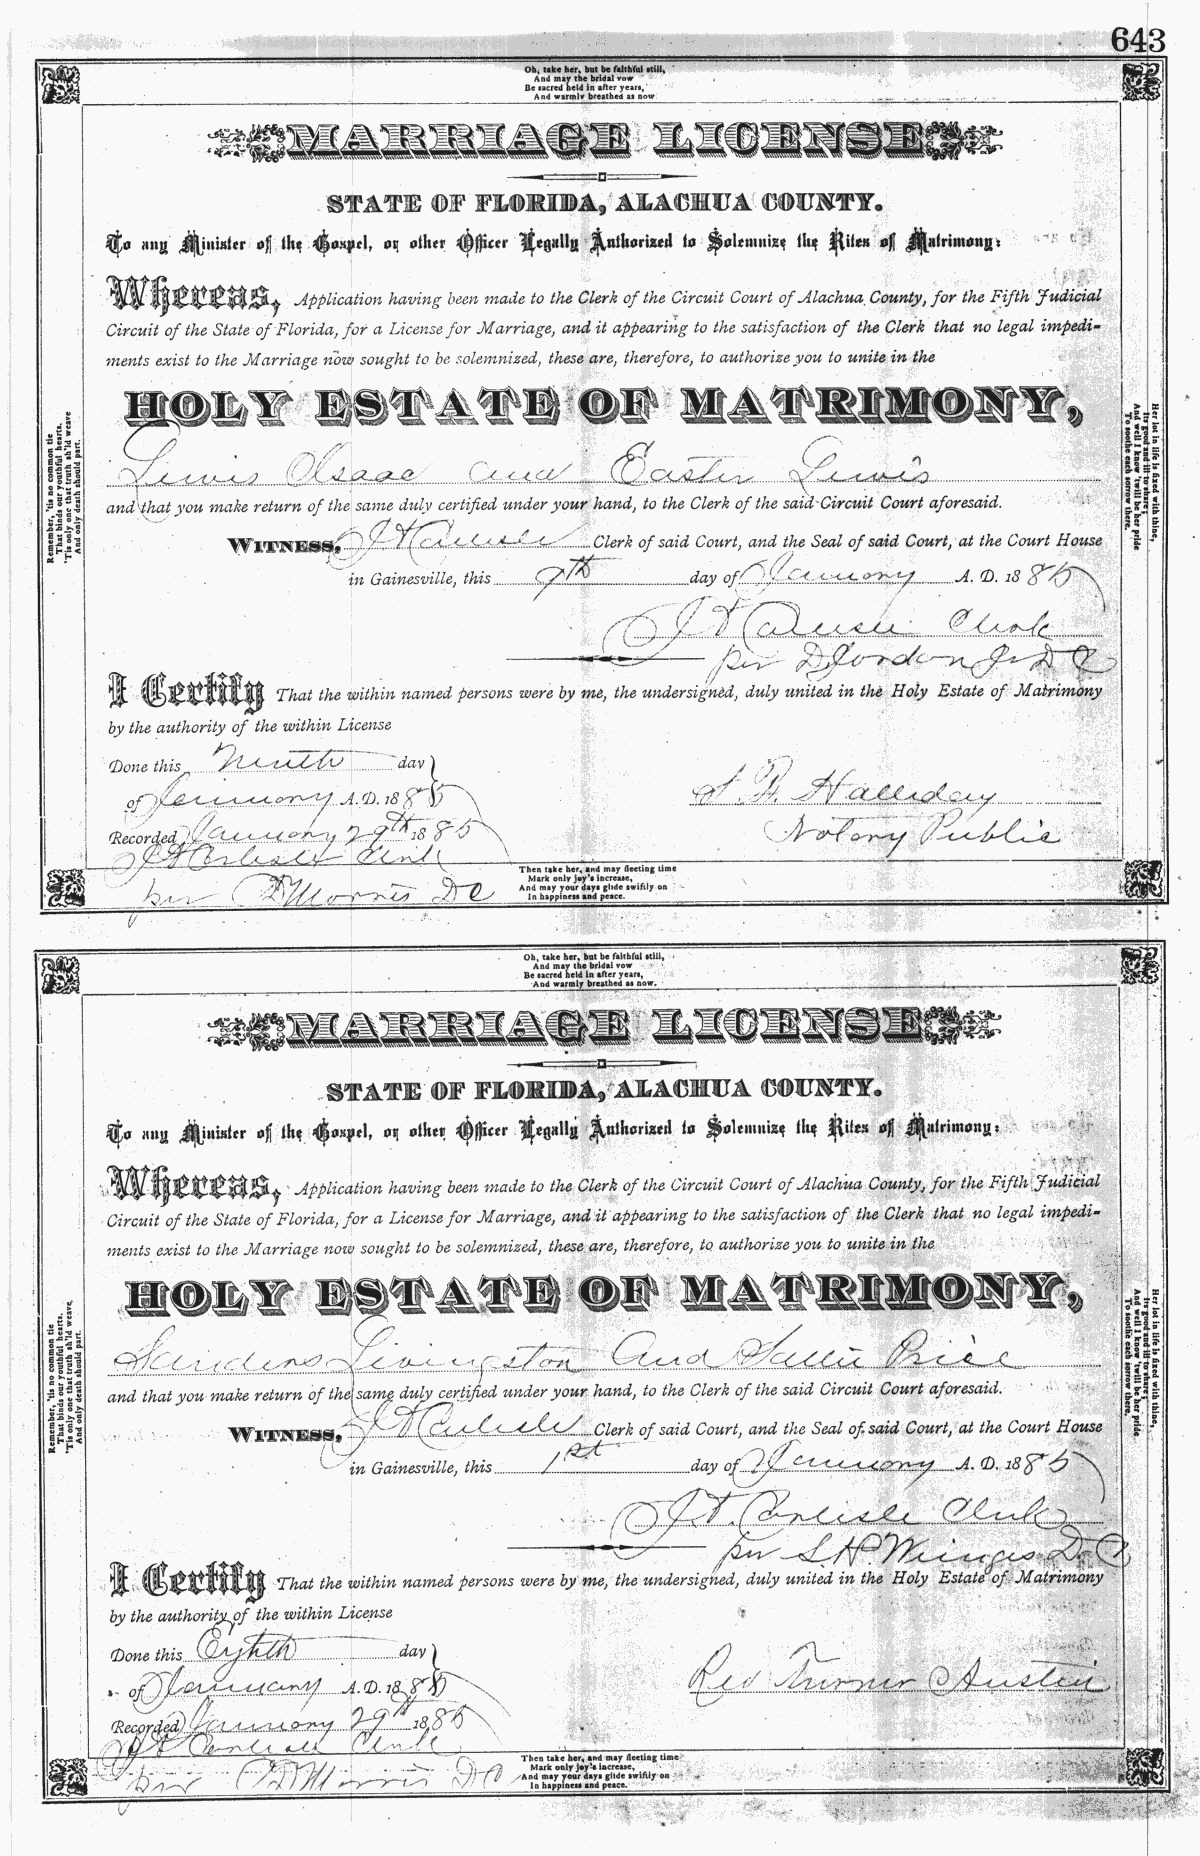 643
Oh, take her, but be faithful still,
And may the bridal vow
Be sacred held in after years,
And warmly breathed as now
MARRIAGE LICENSE
STATE OF FLORIDA, ALACHUA COUNTY.
To any Minister of the Gospel, or other Officer Legally Authorized to Solemnize the Rites of Matrimony:
Whereas, Application having been made to the Clerk of the Circuit Court of Alachua County, for the Fifth Judicial
Circuit of the State of Florida, for a License for Marriage, and it appearing to the satisfaction of the Clerk that no legal impedi-
ments exist to the Marriage now sought to be solemnized, these are, therefore, to authorize you to unite in the
HOLY ESTATE OF MATRIMONY,
Lewis Isaac and Easter Lewis
and that you make return of the same duly certified under your hand, to the Clerk of the said Circuit Court aforesaid.
WITNESS, J A Carlisle Clerk of said Court, and the Seal of said Court, at the Court House
in Gainesville, this 9th day of January A. D. 1885
J A Carlisle Clerk
per D Gordon Jr D C
I Certify That the within named persons were by me, the undersigned, duly united in the Holy Estate of Matrimony
by the authority of the within License
Done this Ninth day
of January A. D. 1885
S. F. Halliday
Recorded January 29th 1885
Notary Public
J A Carlisle Clerk
per Morris DC
Remember, 'tis no common tie
That binds our youthful hearts.
'Tis only one that truth sh'ld weave
And only death should part.
Her lot in life is fixed with thine,
Its good and ill to share;
And well I know 'twill be her pride
To soothe each sorrow there.
Then take her, and may fleeting time
Mark only joy's increase,
And may your days glide swiftly on
In happiness and peace.
Oh, take her, but be faithful still,
And may the bridal vow
Be sacred held in after years,
And warmly breathed as now.
MARRIAGE LICENSE
STATE OF FLORIDA, ALACHUA COUNTY.
To any Minister of the Gospel, or other Officer Legally Authorized to Solemnize the Rites of Matrimony:
Whereas, Application having been made to the Clerk of the Circuit Court of Alachua County, for the Fifth Judicial
Circuit of the State of Florida, for a License for Marriage, and it appearing to the satisfaction of the Clerk that no legal impedi-
ments exist to the Marriage now sought to be solemnized, these are, therefore, to authorize you to unite in the
HOLY ESTATE OF MATRIMONY,
Sanders Livingston And Sallie Price
and that you make return of the same duly certified under your hand, to the Clerk of the said Circuit Court aforesaid.
WITNESS, J A Carlisle Clerk of said Court, and the Seal of said Court, at the Court House
in Gainesville, this 1st day of January A. D. 1885
J. A. Carlisle Clerk
per S. H. Wienges D. C.
I Certify That the within named persons were by me, the undersigned, duly united in the Holy Estate of Matrimony
by the authority of the within License
Done this Eighth day
of January A. D. 1885
Rev Turner Austin
Recorded January 29th 1885
J A Carlisle Clerk
per Morris DC
Remember, 'tis no common tie
That binds our youthful hearts.
'Tis only one that truth sh'ld weave
And only death should part.
Her lot in life is fixed with thine,
Its good and ill to share;
And well I know 'twill be her pride
To soothe each sorrow there.
Then take her, and may fleeting time
Mark only joy's increase,
And may your days glide swiftly on
In happiness and peace.